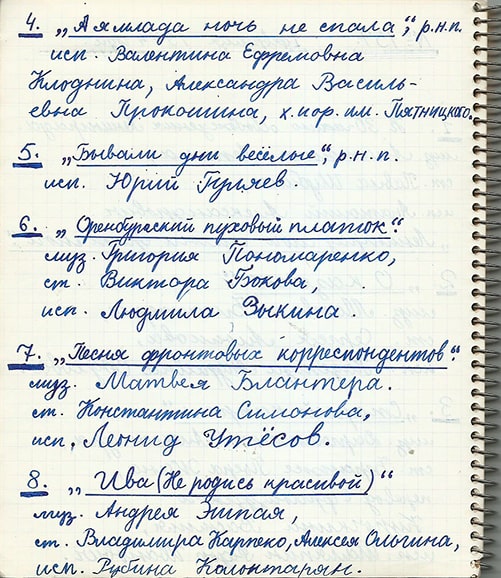 4. „А я млада ночь не спала“, р.н.п.
исп. Валентина Ефремовна
Клоднина, Александра Василь-
евна Прокошина, х. нор. им. Пятницкого.
5. „Бывали дни весёлые“, р.н.п.
исп. Юрий Гуляев.
6. „Оренбургский пуховый платок“.
муз. Григория Пономаренко,
ст. Виктора Бокова,
исп. Людмила Зыкина.
7. „Песня фронтовых корреспондентов“.
муз. Матвея Блантера.
ст. Константина Симонова,
исп. Леонид Утёсов.
8. „Ива (Не родись красивой)“
муз. Андрея Эшпая,
ст. Владимира Карпеко, Алексея Ольгина,
исп. Рубина Калантарян.